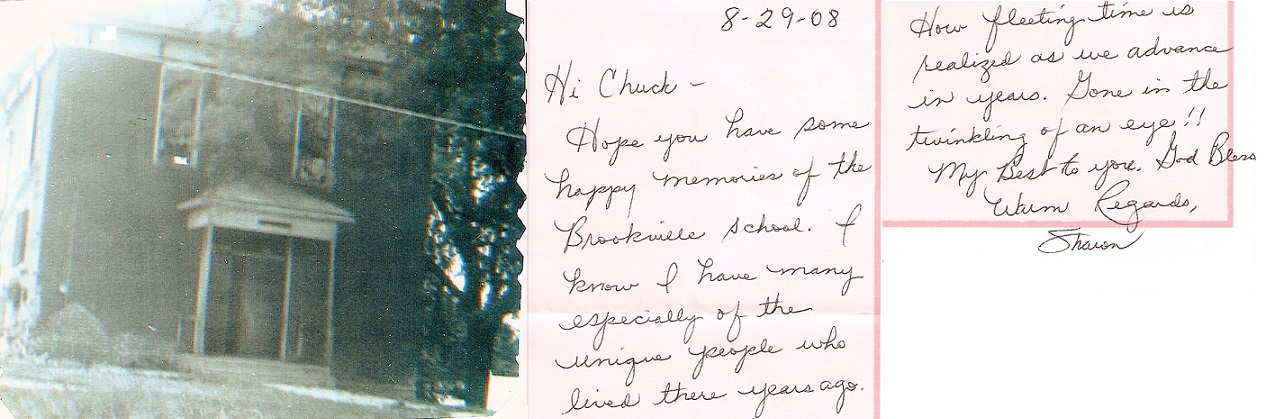 8-29-08
Hi Chuck -
Hope you have some
happy memories of the
Brookville School. I
know I have many
especially of the
unique people who
lived there years ago.
How fleeting time is
realized as we advance
in years. Gone in the
twinkling of an eye!!
My Best to you. God Bless
Warm Regards,
Sharon